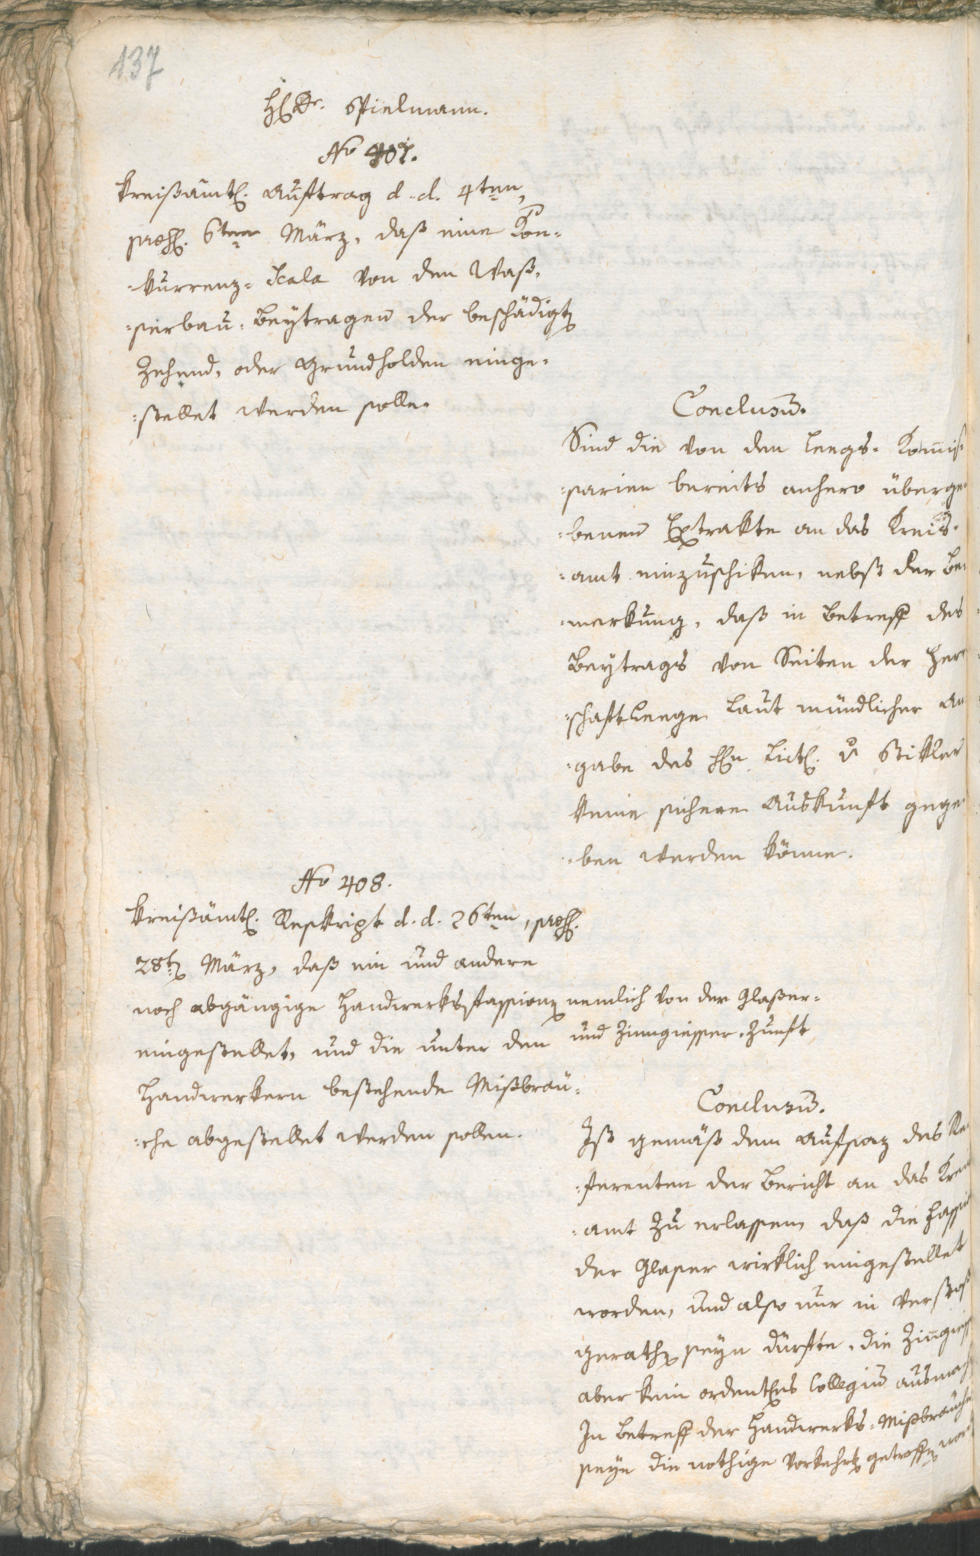 137
H Dr. Spielmann.
No 407.
Kreißämtl. Auftrag d. d. 4ten,
präs. 6ten März, daß eine Kon-
kurrenz-Scala von den Waß-
serbau-Beytragen der beschädigt
Zehend- oder Grundholden einge-
stellet werden solle.
Conclusum.
Sind die von den Leegs-Kommis
sarien bereits anhero überge
benen Extrakte an das Kreis-
amt einzuschiken, nebst der Be
merkung, daß in Betreff des
Beytrags von Seiten der Herr
schaft Leege laut mündlicher An
gabe des Hn Lict. v Stikler
keine sichere Auskunft gege
ben werden könne.
No 408.
Kreißämtl. Reskript d. d. 26ten, präs.
28t März, daß ein und andere
noch abgängige Handwerksfassion nemlich von der Glaßer-
und Zinngiesser-Zunft
eingestellet, und die unter den
Handwerkern bestehende Mißbräu-
che abgestellet werden sollen.
Conclusum.
Ist gemäß dem Aufsaz des Re
ferenten der Bericht an das Kreis
amt zu erlassen, daß die Fassion
der Glaser wirklich eingestellet
worden, und also nur in Verstoß
gerath seyn dürfte, die Zinngiess
aber kein ordentlichs Collegium ausmach
In Betreff der Handwerks-Mißbräuche
seyn die nothige Vorkehr getroffen wor